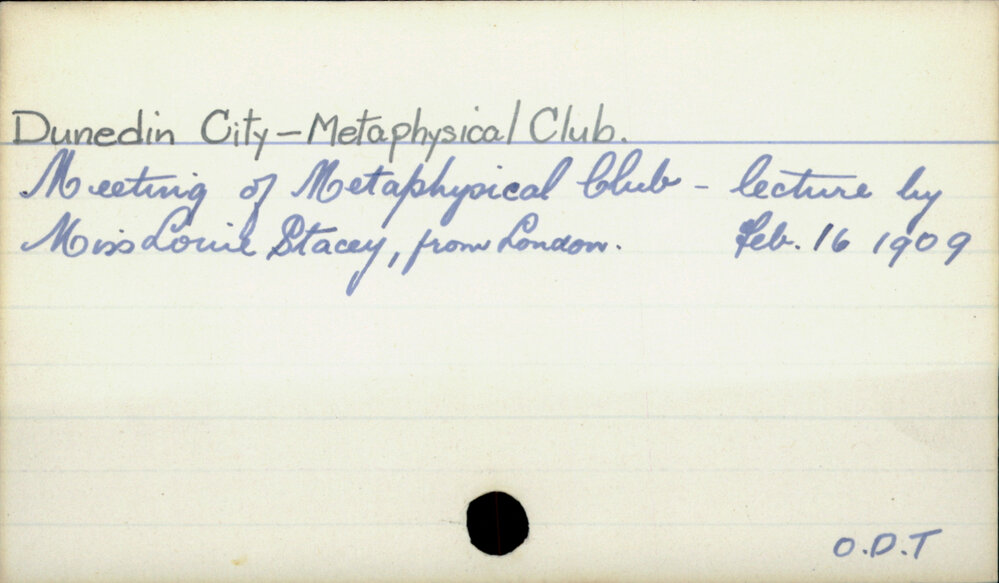 Dunedin City - Metaphysical Club.
Meeting of Metaphysical Club - lecture by
Miss Louie Stacey, from London. Feb. 16 1909
O.D.T